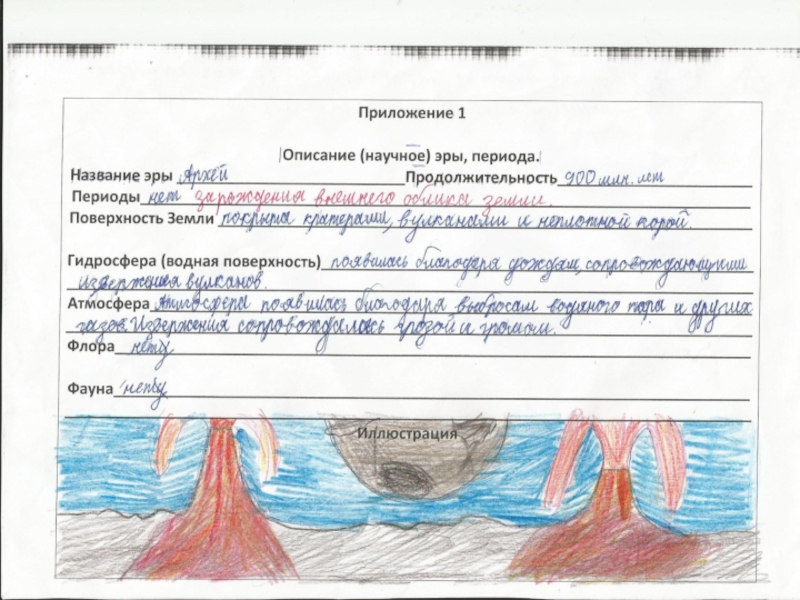 Приложение 1
Описание (научное) эры, периода.
Название эры Архей Продолжительность 900 млн. лет
Периоды нет зарождения внешнего облика земли.
Поверхность Земли покрыта кратерами, вулканами и неплотной корой.
Гидросфера (водная поверхность) появилась благодаря дождям, сопровождающими
извержения вулканов.
Атмосфера Атмосфера появилась благодаря выбросам водяного пара и других
газов. Извержения сопровождались грозой и громом.
Флора нету
Фауна нету
Иллюстрация